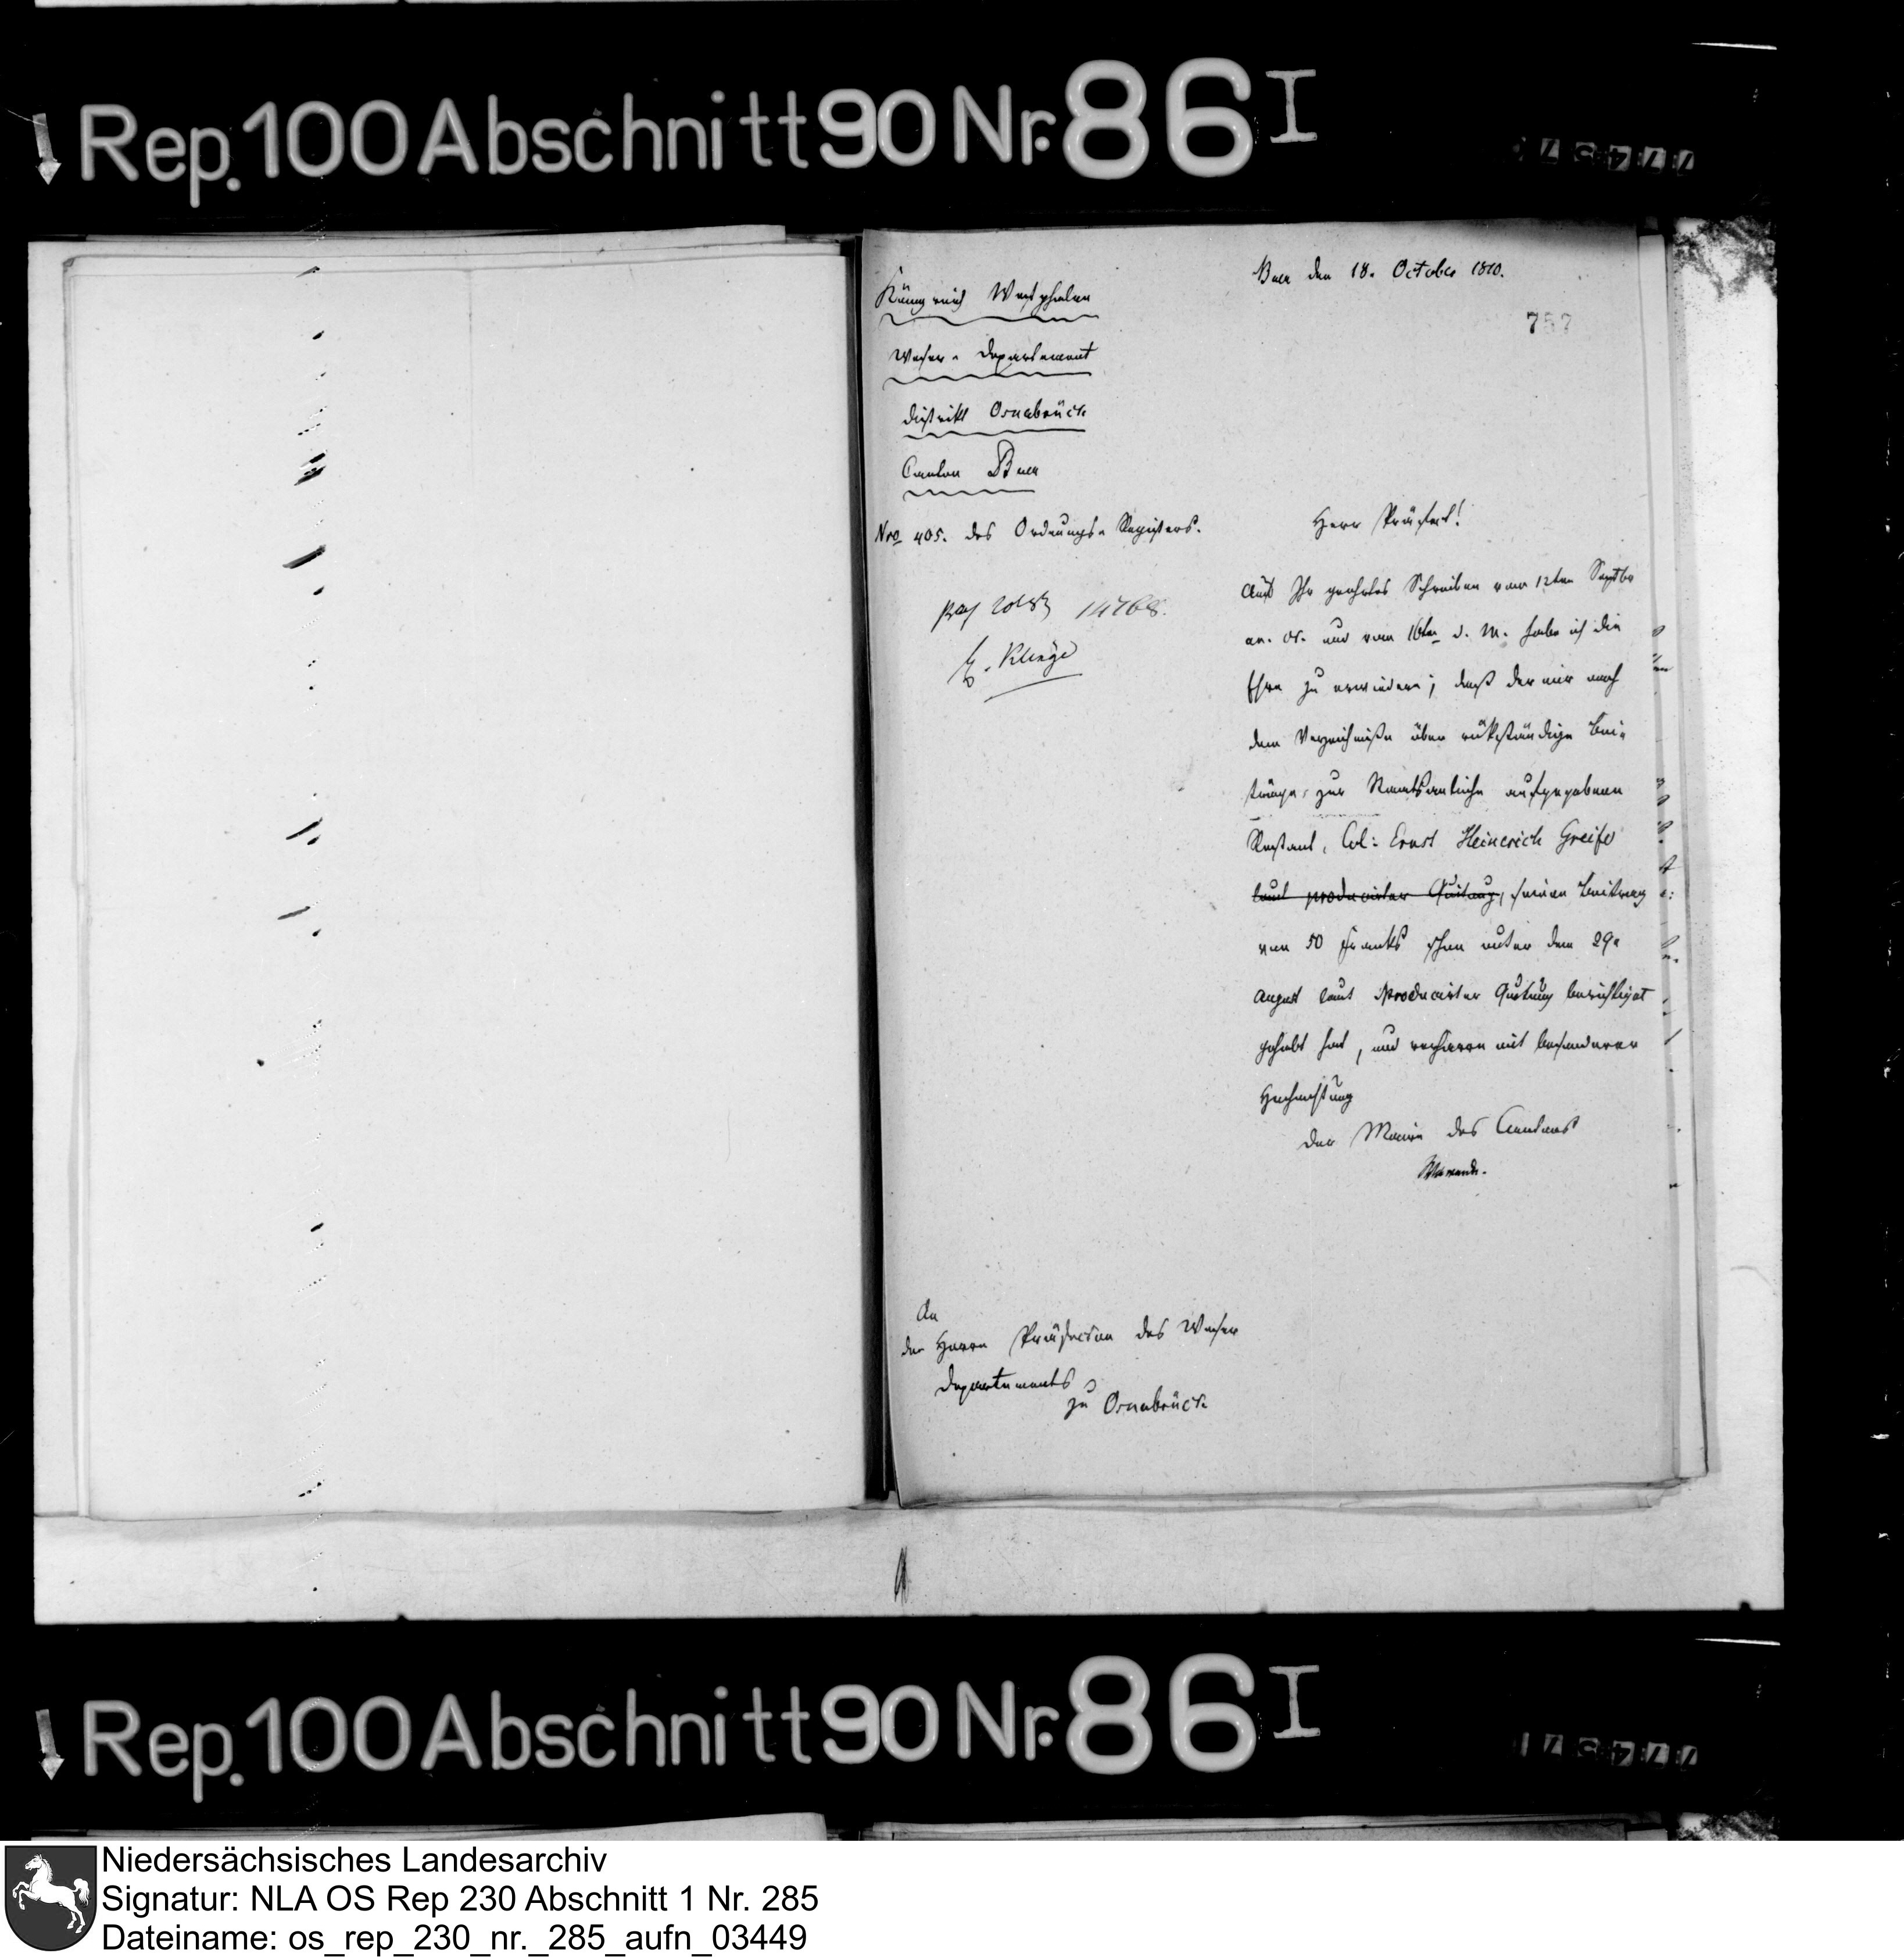 Rep. 100 Abschnitt 90 Nr. 86 I
Buer den 18. October 1810.
757
Königreich Westphalen
Weser-Departement
District Osnabrück
Canton Buer
Nro 405. des Ordnungs-Registers.
Herr Präfect!
14768.
Klinge
Auf Ihr geehrtes Schreiben vom 12ten Septbr
und vom 16ten d. M. habe ich die
Ehre zu erwiedern; daß der mir nach
dem Verzeichniße über rükständige Bei-
träge zur Staatsanleihe aufgegebene
Restant, Col: Ernst Heinrich Greife
laut producirter Quitung, seinen Beitrag
von 50 Franks schon unter dem 29n
August laut producirter Quitung berichtiget
gehabt hat, und verharre mit besonderer
Hochachtung
Der Maire des Cantons
An
den Herrn Präfecten des Weser
Departements
zu Osnabrück
Rep. 100 Abschnitt 90 Nr. 86 I
Niedersächsisches Landesarchiv
Signatur: NLA OS Rep 230 Abschnitt 1 Nr. 285
Dateiname: os_rep_230_nr._285_aufn_03449